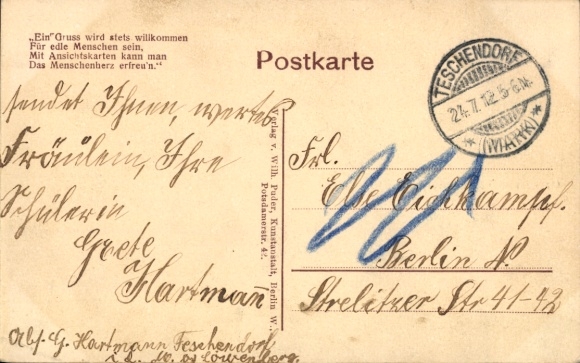 „Ein" Gruss wird stets willkommen
Für edle Menschen sein,
Mit Ansichtskarten kann man
Das Menschenherz erfreu'n."
Postkarte
TESCHENDORF
24.7.12.5-6N.
* (MARK) *
sendet Ihnen, wertes
Fräulein, Ihre
Schülerin
Grete
Hartmann
Abs. G. Hartmann Teschendorf
Löwenberg.
Verlag v. Wilh. Puder, Kunstanstalt, Berlin W.,
Potsdamerstr. 42.
Frl.
Else Eichkampf.
Berlin N.
Strelitzer Str 41-42